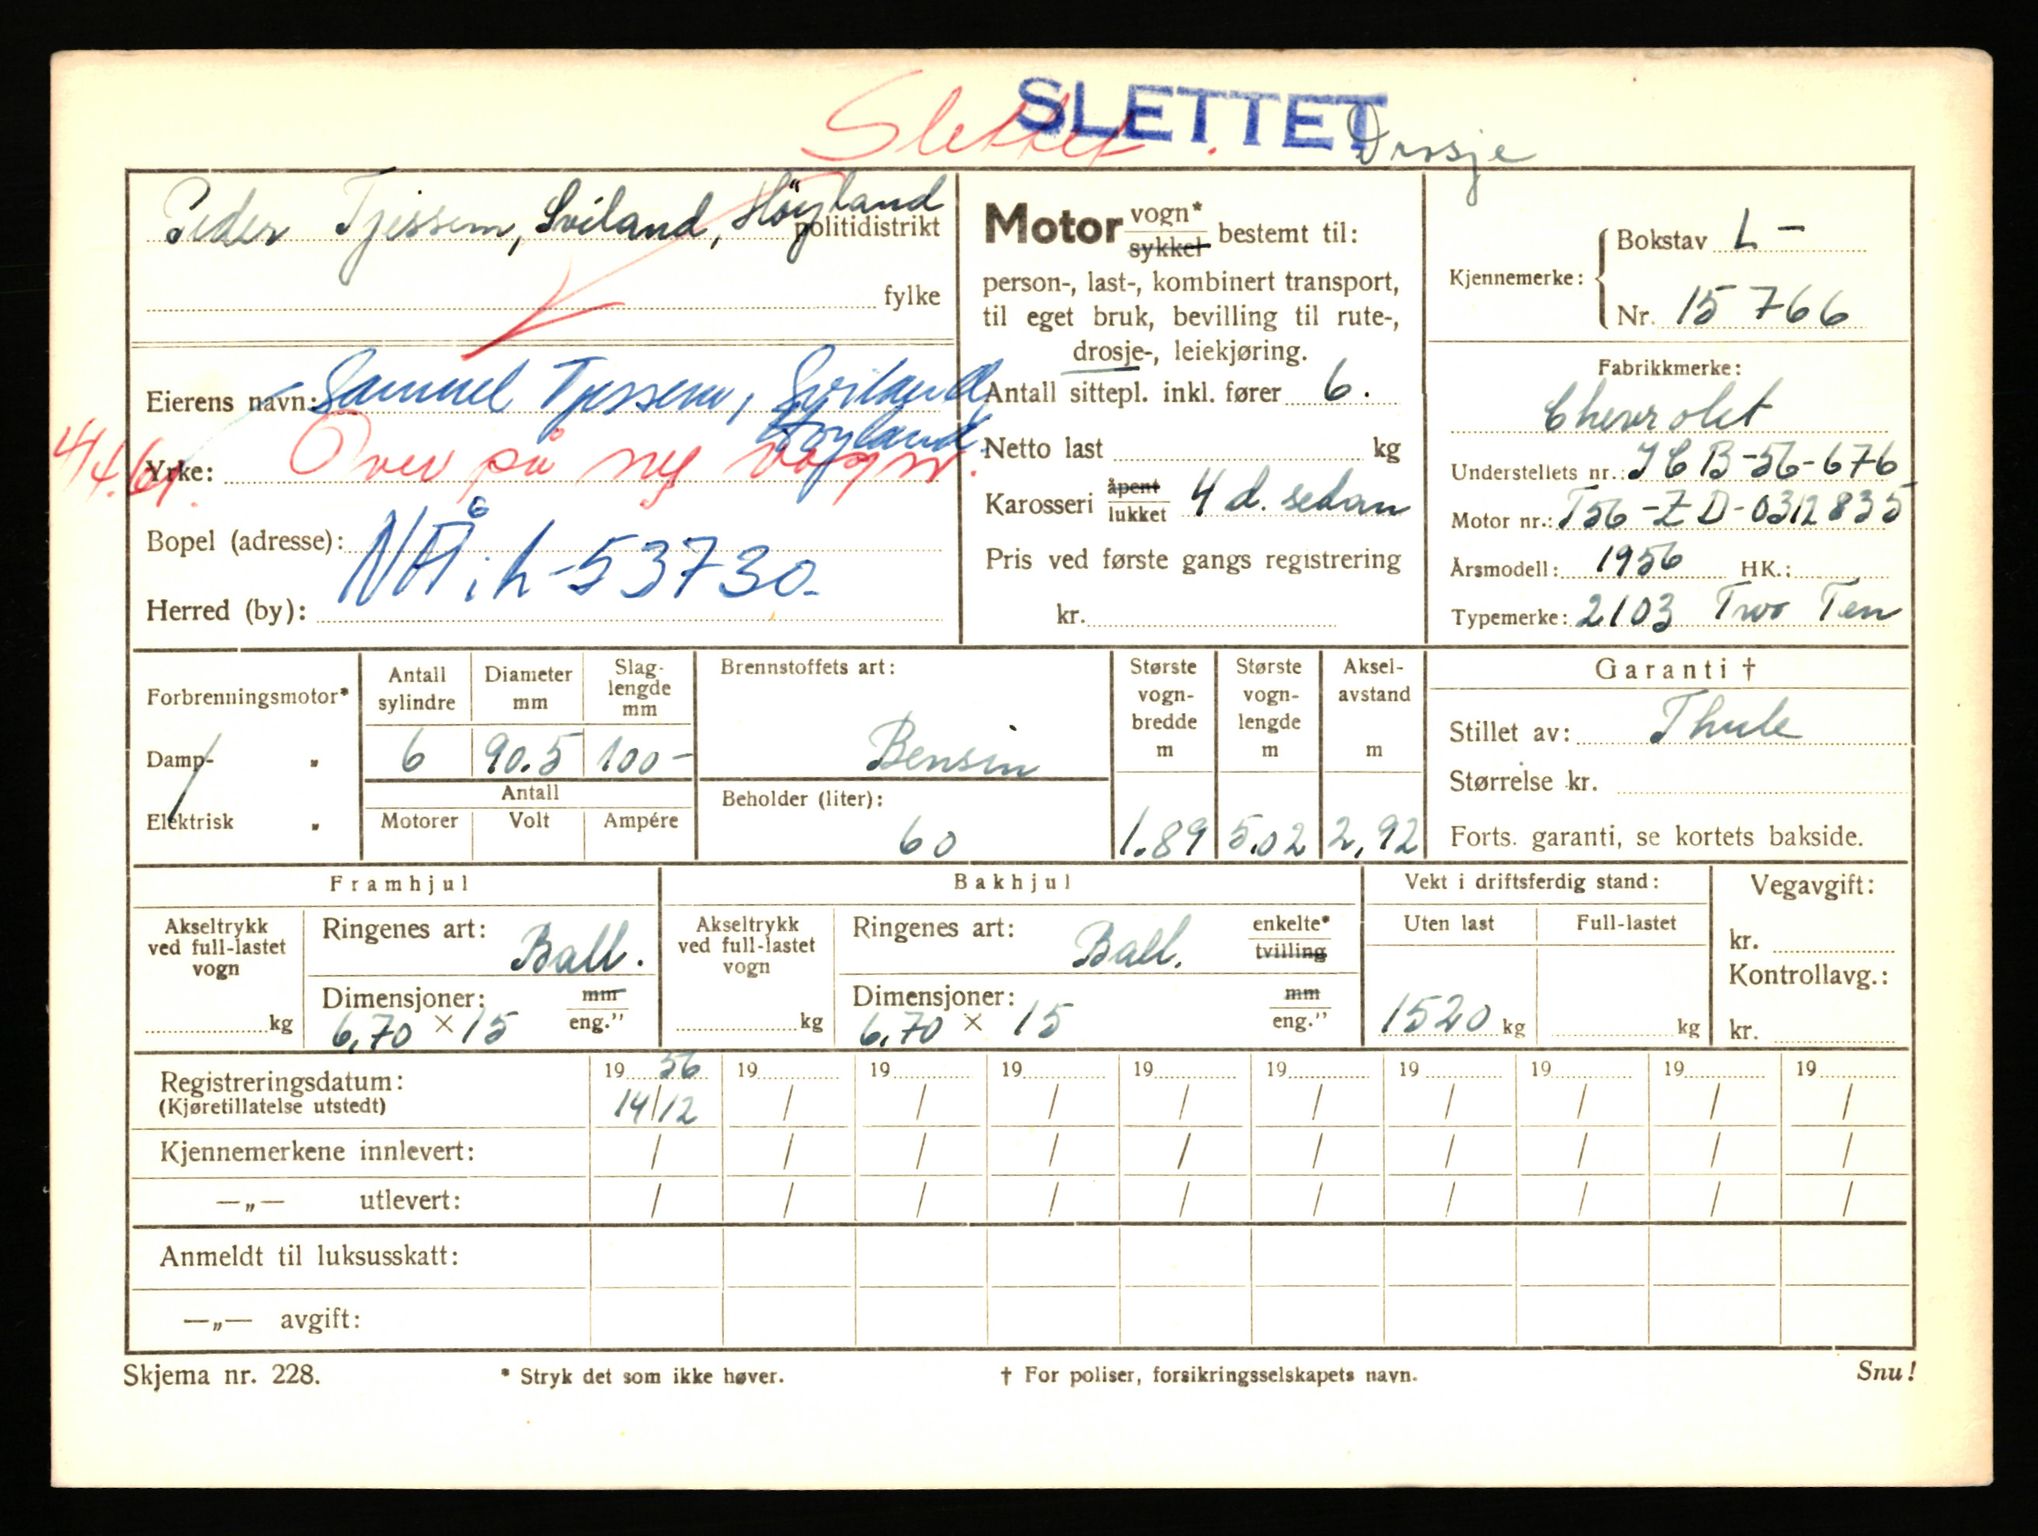 Slettet. SLETTET Drosje
Peder Tjessem, Sviland, Höyland politidistrikt
fylke
Eierens navn: Samuel Tjessem, Sviland,
Høyland.
4/4.61. Yrke: Over på ny vogn.
Bopel (adresse):
NÅ: L-53730.
Herred (by):
Motor vogn* sykkel bestemt til:
person-, last-, kombinert transport,
til eget bruk, bevilling til rute-,
drosje-, leiekjøring.
Antall sittepl. inkl. fører 6.
Netto last kg
Karosseri åpent lukket 4 d. sedan
Pris ved første gangs registrering
kr.
Kjennemerke: Bokstav L -
Nr. 15766
Fabrikkmerke:
Chevrolet
Understellets nr.: JCB-56-676
Motor nr.: T56-ZD-0312835
Årsmodell: 1956 HK.:
Typemerke: 2103 Two Ten
Forbrenningsmotor*
Damp- "
Elektrisk "
Antall sylindre Diameter mm Slaglengde mm
6 90.5 100-
Antall
Motorer Volt Ampére
Brennstoffets art:
Bensin
Beholder (liter):
60
Største vogn-bredde m Største vogn-lengde m Aksel-avstand m
1.89 5,02 2,92
Garanti †
Stillet av: Thule
Størrelse kr.
Forts. garanti, se kortets bakside.
Framhjul
Akseltrykk ved full-lastet vogn
kg
Ringenes art: Ball.
Dimensjoner: mm eng."
6,70 × 15
Bakhjul
Akseltrykk ved full-lastet vogn
kg
Ringenes art: Ball. enkelte* tvilling
Dimensjoner: mm eng."
6,70 × 15
Vekt i driftsferdig stand:
Uten last Full-lastet
1520 kg kg
Vegavgift:
kr.
Kontrollavg.:
kr.
Registreringsdatum: 19 56 19 19 19 19 19 19 19 19 19
(Kjøretillatelse utstedt) 14/12 / / / / / / / / /
Kjennemerkene innlevert: / / / / / / / / / /
—„— utlevert: / / / / / / / / / /
Anmeldt til luksusskatt:
—„— avgift:
Skjema nr. 228. * Stryk det som ikke høver. † For poliser, forsikringsselskapets navn. Snu!